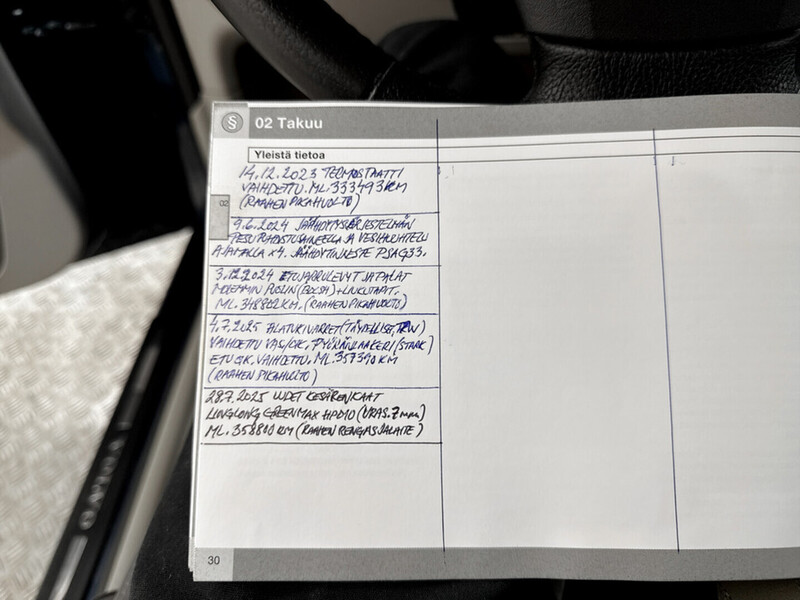 § 02 Takuu
Yleistä tietoa
02
14.12.2023 TERMOSTAATTI
VAIHDETTU. ML. 333493 KM
(RAAHEN PIKAHUOLTO)
9.6.2024 JÄÄHDYTYSJÄRJESTELMÄN
PESU PUHDISTUSAINEELLA JA VESIHUUHTELU
AJAMALLA X4. JÄÄHDYTINNESTE PSAG33.
3.12.2024 ETUJARRULEVYT JA PALAT
MOLEMMIN PUOLIN (BOCSH) +
ML. 348802 KM. (RAAHEN PIKAHUOLTO)
4.7.2025 ALATUKIVARRET (TÄYDELLISET, TRW)
VAIHDETTU VAS/OIK. PYÖRÄNLAAKERI (STARK)
ETU OIK. VAIHDETTU. ML. 357390 KM
(RAAHEN PIKAHUOLTO)
28.7.2025 UUDET KESÄRENKAAT
LINGLONG GREENMAX HP010 (URAS. 7mm)
ML. 358800 KM (RAAHEN RENGASJALAITE)
30
VOLVO